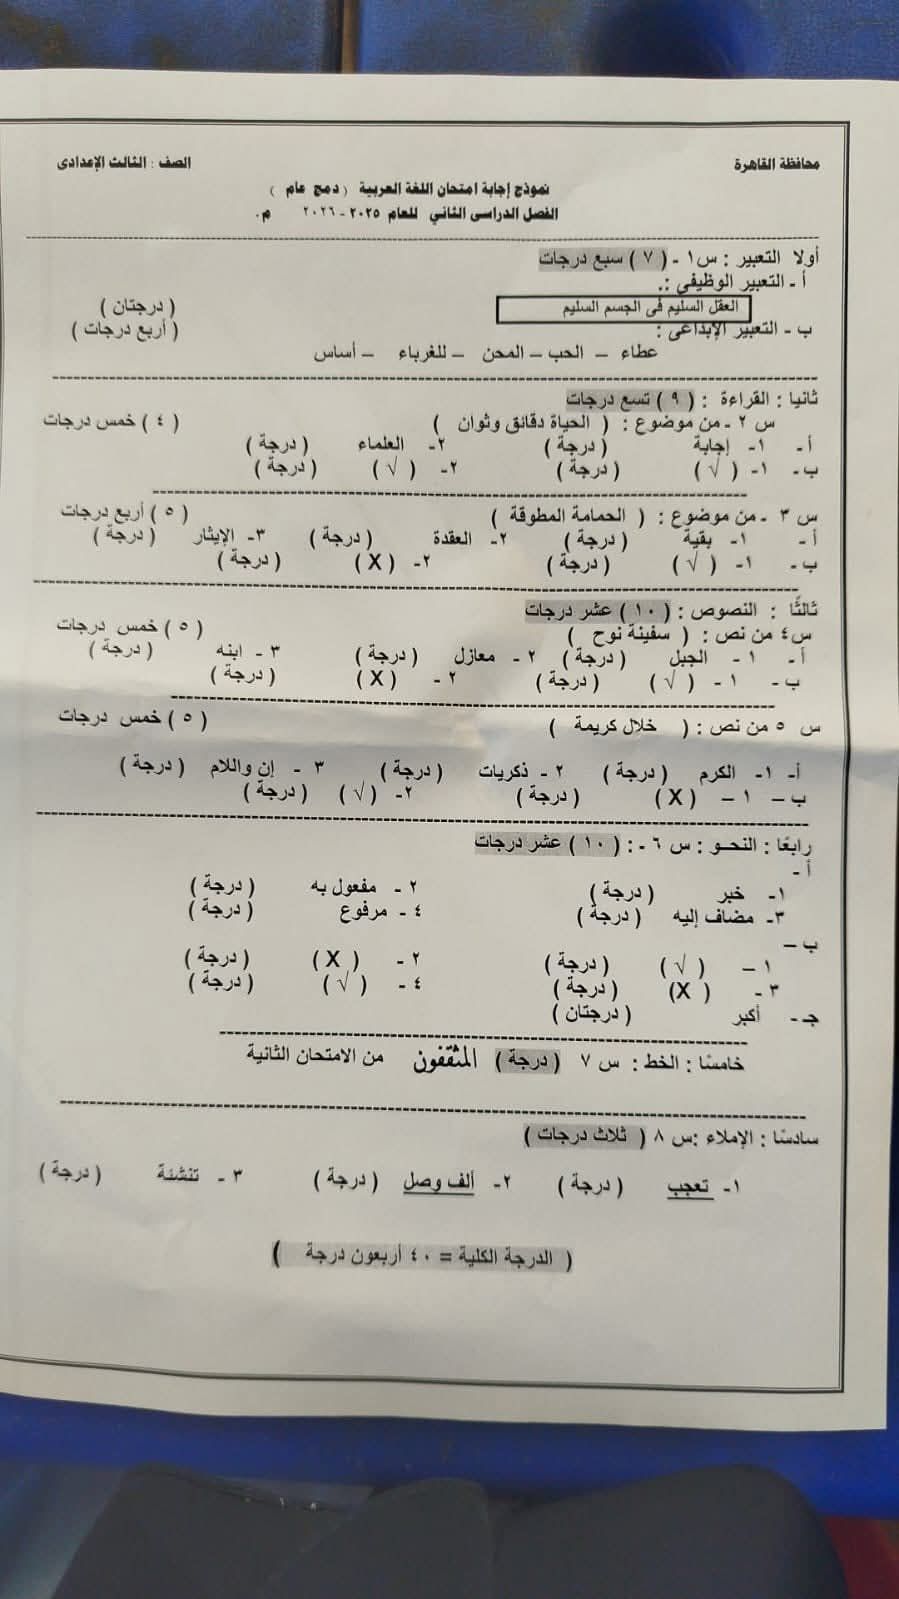 محافظة القاهرة الصف : الثالث الإعدادى
نموذج إجابة امتحان اللغة العربية ( دمج عام )
الفصل الدراسى الثاني للعام ٢٠٢٥ - ٢٠٢٦ م.
أولا التعبير : س١ - ( ٧ ) سبع درجات
أ - التعبير الوظيفي :.
العقل السليم فى الجسم السليم ( درجتان )
ب - التعبير الإبداعى : ( أربع درجات )
عطاء – الحب – المحن – للغرباء – أساس
ثانيا : القراءة : ( ٩ ) تسع درجات
س ٢ - من موضوع : ( الحياة دقائق وثوان ) ( ٤ ) خمس درجات
أ - ١- إجابة ( درجة ) ٢- العلماء ( درجة )
ب - ١- ( √ ) ( درجة ) ٢- ( √ ) ( درجة )
س ٣ - من موضوع : ( الحمامة المطوقة ) ( ٥ ) أربع درجات
أ - ١- بقية ( درجة ) ٢- العقدة ( درجة ) ٣- الإيثار ( درجة )
ب - ١- ( √ ) ( درجة ) ٢- ( X ) ( درجة )
ثالثًا : النصوص : ( ١٠ ) عشر درجات
س٤ من نص : ( سفينة نوح ) ( ٥ ) خمس درجات
أ - ١ - الجبل ( درجة ) ٢ - معازل ( درجة ) ٣ - ابنه ( درجة )
ب - ١ - ( √ ) ( درجة ) ٢ - ( X ) ( درجة )
س ٥ من نص : ( خلال كريمة ) ( ٥ ) خمس درجات
أ- ١- الكرم ( درجة ) ٢ - ذكريات ( درجة ) ٣ - إن واللام ( درجة )
ب – ١ – ( X ) ( درجة ) ٢- ( √ ) ( درجة )
رابعًا : النحـو : س ٦ -: ( ١٠ ) عشر درجات
أ -
١- خبر ( درجة ) ٢ - مفعول به ( درجة )
٣- مضاف إليه ( درجة ) ٤ - مرفوع ( درجة )
ب –
١ – ( √ ) ( درجة ) ٢ - ( X ) ( درجة )
٣ - ( X ) ( درجة ) ٤ - ( √ ) ( درجة )
جـ - أكبر ( درجتان )
خامسًا : الخط : س ٧ ( درجة ) المثقفون من الامتحان الثانية
سادسًا : الإملاء :س ٨ ( ثلاث درجات )
١- تعجب ( درجة ) ٢- ألف وصل ( درجة ) ٣ - تنشئة ( درجة )
( الدرجة الكلية = ٤٠ أربعون درجة )